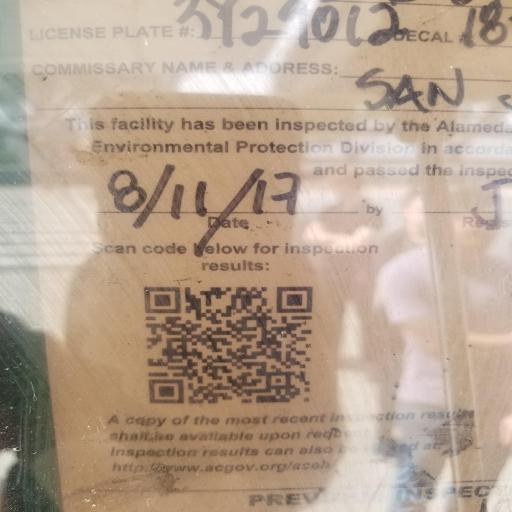 LICENSE PLATE #: 3Y29012 DECAL # 18
COMMISSARY NAME & ADDRESS:
SAN
This facility has been inspected by the Alameda
Environmental Protection Division in accorda
and passed the inspec
8/11/17 by J
Date
Scan code below for inspection
results:
A copy of the most recent inspection results
shall be available upon request
Inspection results can also be at:
http://www.acgov.org/aceh
INSPEC